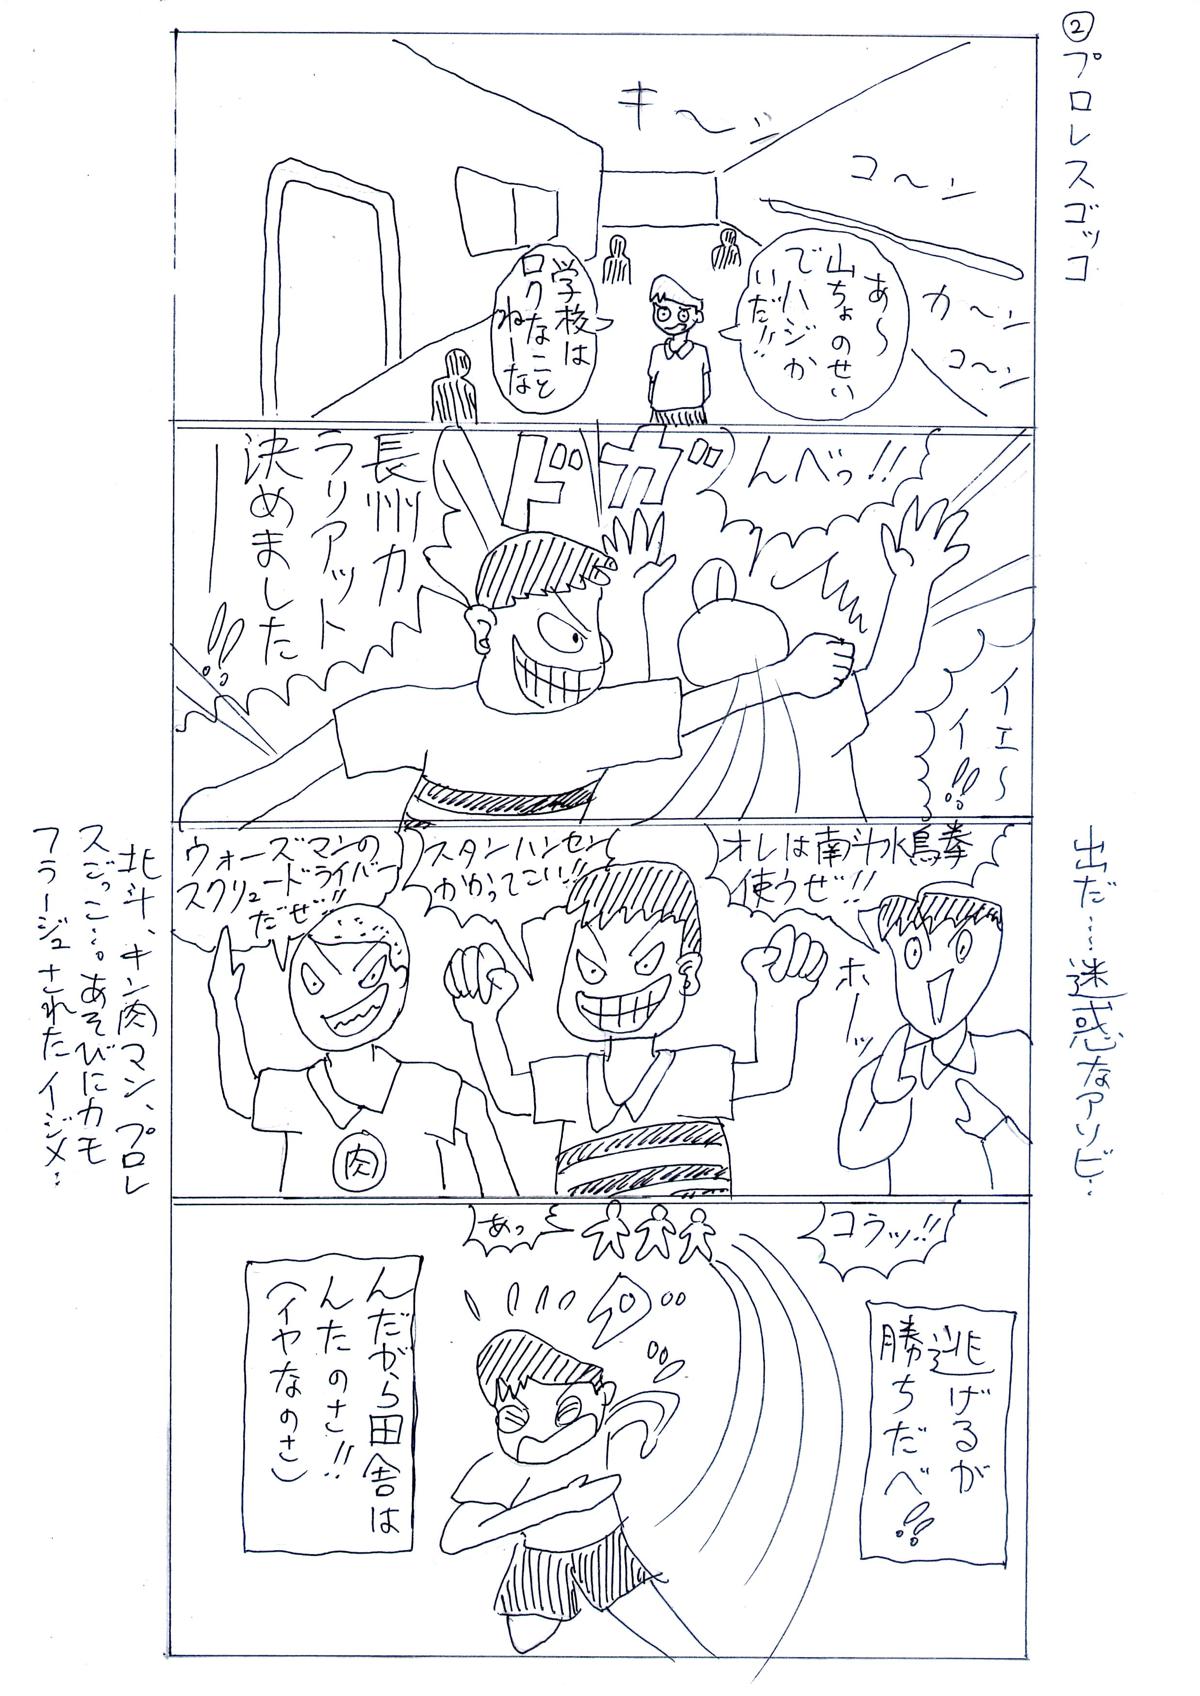 ②プロレスゴッコ
キ〜ン
コ〜ン
カ〜ン
コ〜ン
あ〜
山ちょのせい
でハジか
いだ!!
学校は
ロクなこと
ねーな
んべっ!!
ドガ
イエ〜
イ!!
長州力
ラリアット
決めました
ー!!
出だ……迷惑なアソビ…
オレは南斗水鳥拳
使うぜ!!
ホーッ
スタンハンセン
かかってこい!!
ウォーズマンの
スクリュードライバー
だぜ!!
肉
北斗、キン肉マン、プロレ
スごっこ…。あそびにカモ
フラージュされたイジメ…
コラッ!!
あっ
逃げるが
勝ちだべ!!
んだがら田舎は
んたのさ!!
(イヤなのさ)